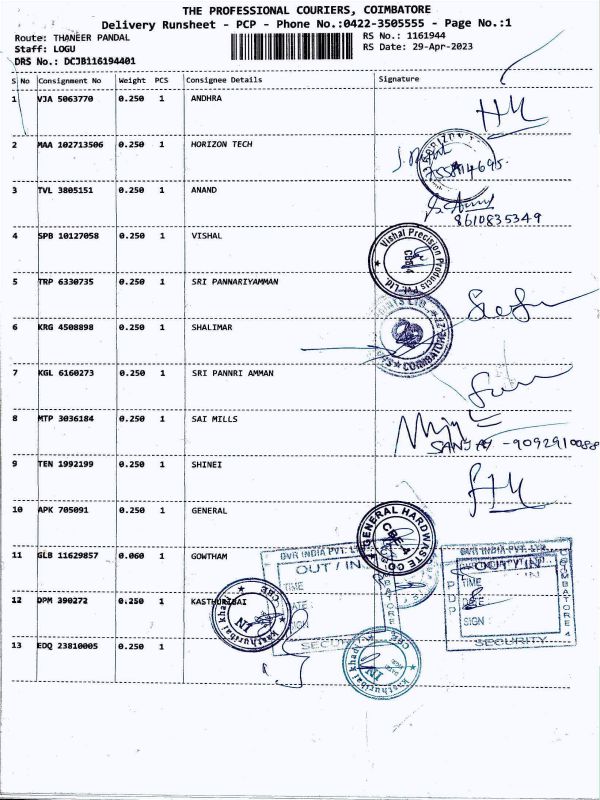 THE PROFESSIONAL COURIERS, COIMBATORE
Delivery Runsheet - PCP - Phone No.:0422-3505555 - Page No.:1
Route: THANEER PANDAL RS No.: 1161944
Staff: LOGU RS Date: 29-Apr-2023
DRS No.: DCJB116194401
S No Consignment No Weight PCS Consignee Details Signature
1 VJA 5063770 0.250 1 ANDHRA
2 MAA 102713506 0.250 1 HORIZON TECH
HORIZON
3 TVL 3805151 0.250 1 ANAND
8610835349
4 SPB 10127058 0.250 1 VISHAL
Vishal Precision Products Pvt. Ltd.
CBE-4
5 TRP 6330735 0.250 1 SRI PANNARIYAMMAN
6 KRG 4508898 0.250 1 SHALIMAR
COIMBATORE
7 KGL 6160273 0.250 1 SRI PANNRI AMMAN
8 MTP 3036184 0.250 1 SAI MILLS
SANJAY -9092910088
9 TEN 1992199 0.250 1 SHINEI
10 APK 705091 0.250 1 GENERAL
GENERAL HARDWASTE CO
CBE-4
11 GLB 11629857 0.060 1 GOWTHAM
GVR INDIA PVT. LTD
OUT / IN
TIME
DATE
SIGN
SECURITY
COIMBATORE 4
12 DPM 390272 0.250 1 KASTHURIBAI
kasthuribai khadi
CBE
13 EDQ 23810005 0.250 1
kasthuribai khadi
CBE